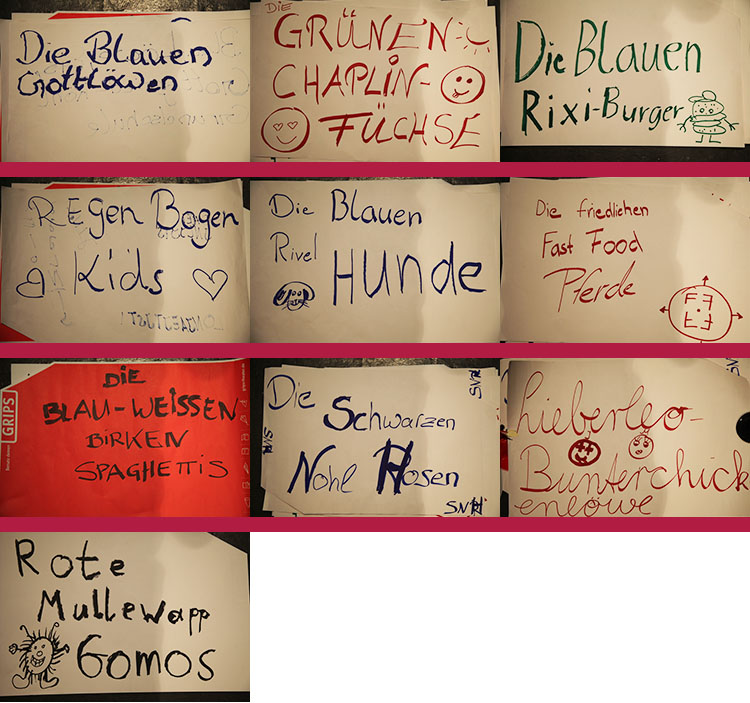 Die Blauen
Gottlöwen
DIE
GRÜNEN
CHAPLIN-
FÜCHSE
Die Blauen
Rixi-Burger
REgen Bogen
Kids
Die Blauen
Rixel
HUNDE
Die friedlichen
Fast Food
Pferde
FF
FF
GRIPS
DIE
BLAU-WEISSEN
BIRKEN
SPAGHETTIS
Die Schwarzen
Nohl Hosen
SNH
SNH
SNH
Lieberleo-
Bunterchick
enlöwe
Rote
Mullewapp
Gomos